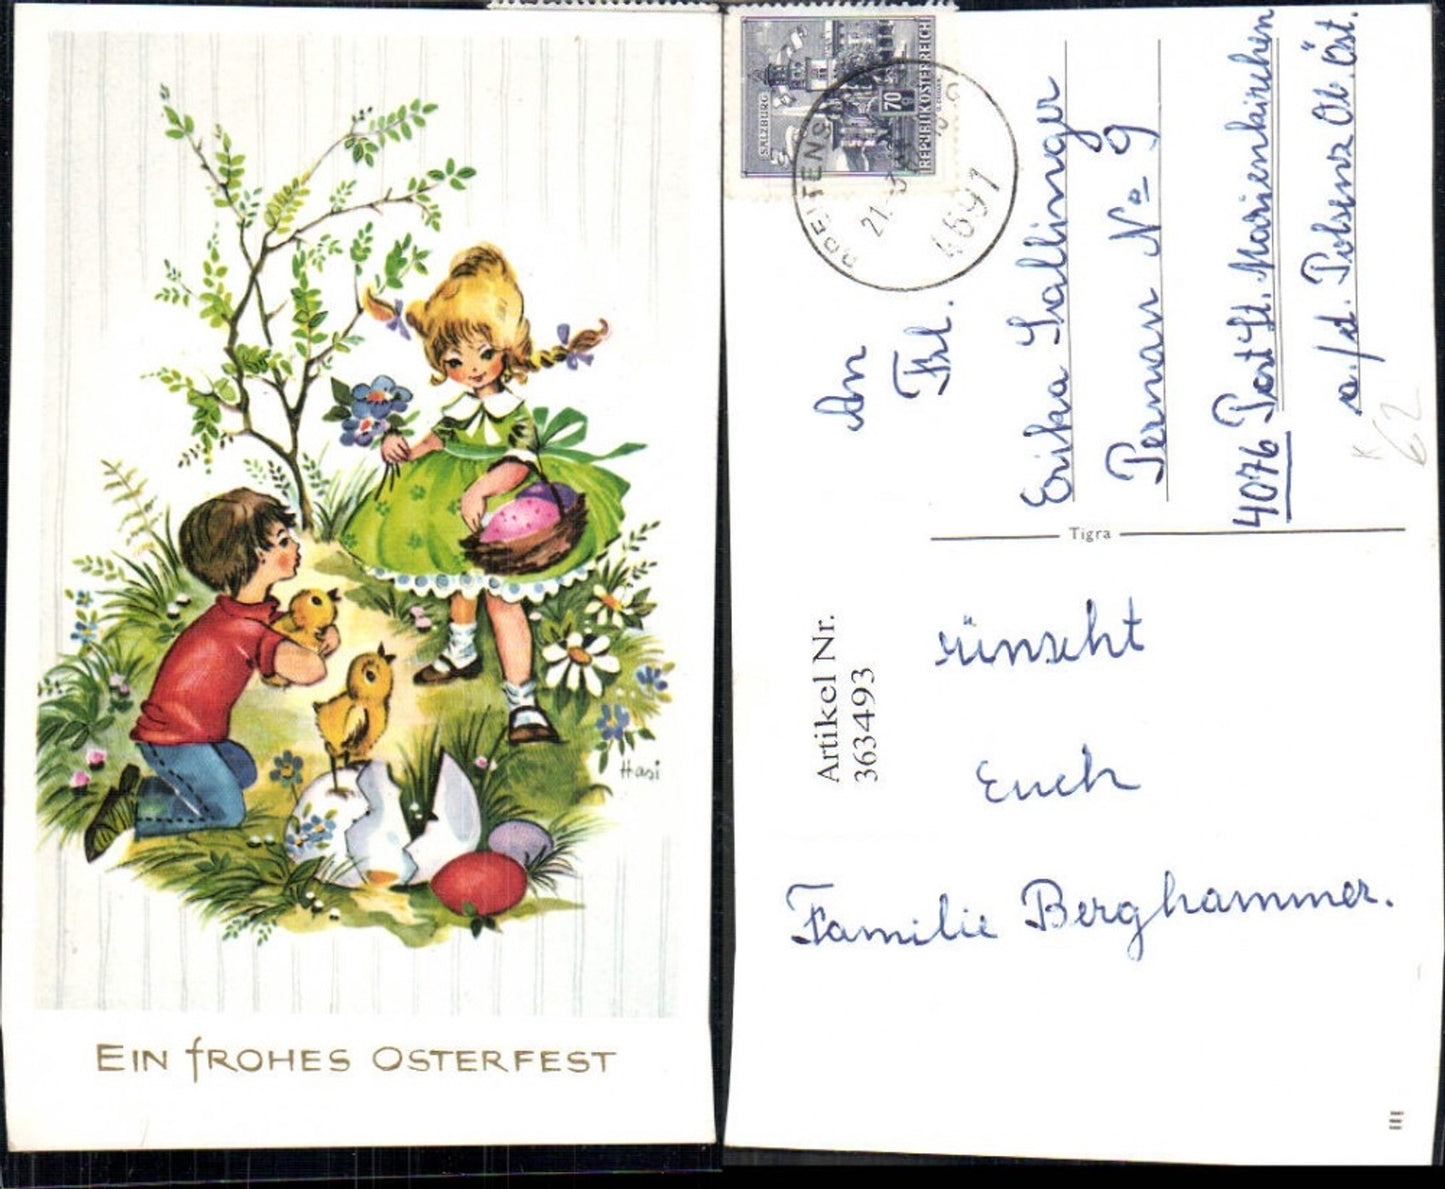 Hasi
EIN FROHES OSTERFEST
SALZBURG
70
REPUBLIK ÖSTERREICH
21.-3
4691
An
Frl.
Erika Sallinger
Pernau No 9
4076 Post St. Marienkirchen
a./d. Polsenz Ob. Öst.
K
62
Tigra
Artikel Nr.
363493
wünscht
Euch
Familie Berghammer.
III